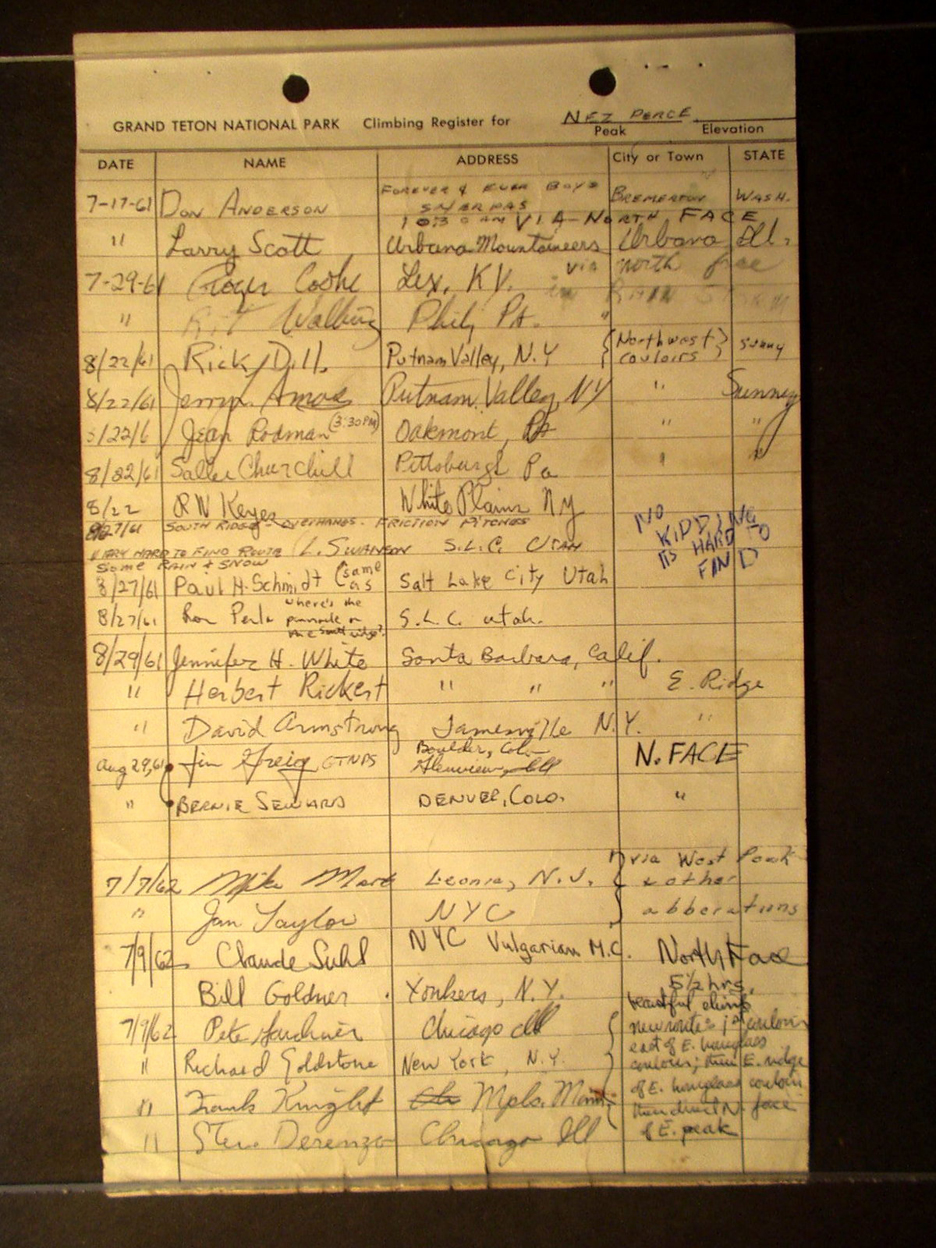 NEZ PERCE
GRAND TETON NATIONAL PARK Climbing Register for Peak Elevation
DATE NAME ADDRESS City or Town STATE
7-17-61 DON ANDERSON FOREVER & EVER BOYS SHERPAS BREMERTON WASH.
10:30 AM VIA NORTH FACE
" Larry Scott Urbana Mountaineers Urbana Ill.
7-29-61 Roger Cooke Lex, KY. via north face
" Phil, PA. " in RAIN
8/22/61 Ricky Dill Putnam Valley, N.Y {Northwest couloirs}
8/22/61 Jerry Amos Putnam Valley, NY " Sunney
8/22/6 Jean Rodman (3:30PM) Oakmont, Pa " "
8/22/61 Sallee Churchill Pittsburgh Pa " "
8/22 RW Keyes White Plains NY
8/27/61 SOUTH RIDGE - OVERHANGS. FRICTION PITCHES
VERY HARD TO FIND ROUTE L. SWANSON S.L.C. UTAH
SOME RAIN & SNOW
NO KIDDING
ITS HARD TO
FIND
8/27/61 Paul H. Schmidt (same as Salt Lake City Utah
8/27/61 Ron Perla where's the pinnacle on the south ridge? S.L.C. utah.
8/29/61 Jennifer H. White Santa Barbara, Calif.
" Herbert Rickert " " " E. Ridge
" David Armstrong Jamesville N.Y. "
Aug 29, 61 Jim Greig GTNPS Boulder, Col. Glenview, Ill N. FACE
" BERNIE SEWARD DENVER, COLO. "
7/7/62 Mike Leonia, N.J. } via West Peak
& other
" Jan Taylor NYC abberations
7/9/62 Claude Suhl NYC Vulgarian M.C. North Face
5½ hrs.
Bill Goldner Yonkers, N.Y. beautiful climb
7/9/62 Pete Chicago Ill { new route: 1st couloir
east of E. hourglass
" Richard Goldstone New York, N.Y. couloir; then E. ridge
of E. hourglass couloir
" Frank Knight Mpls. Minn. then direct N. face
" Steve Derenzo Chicago Ill of E. peak